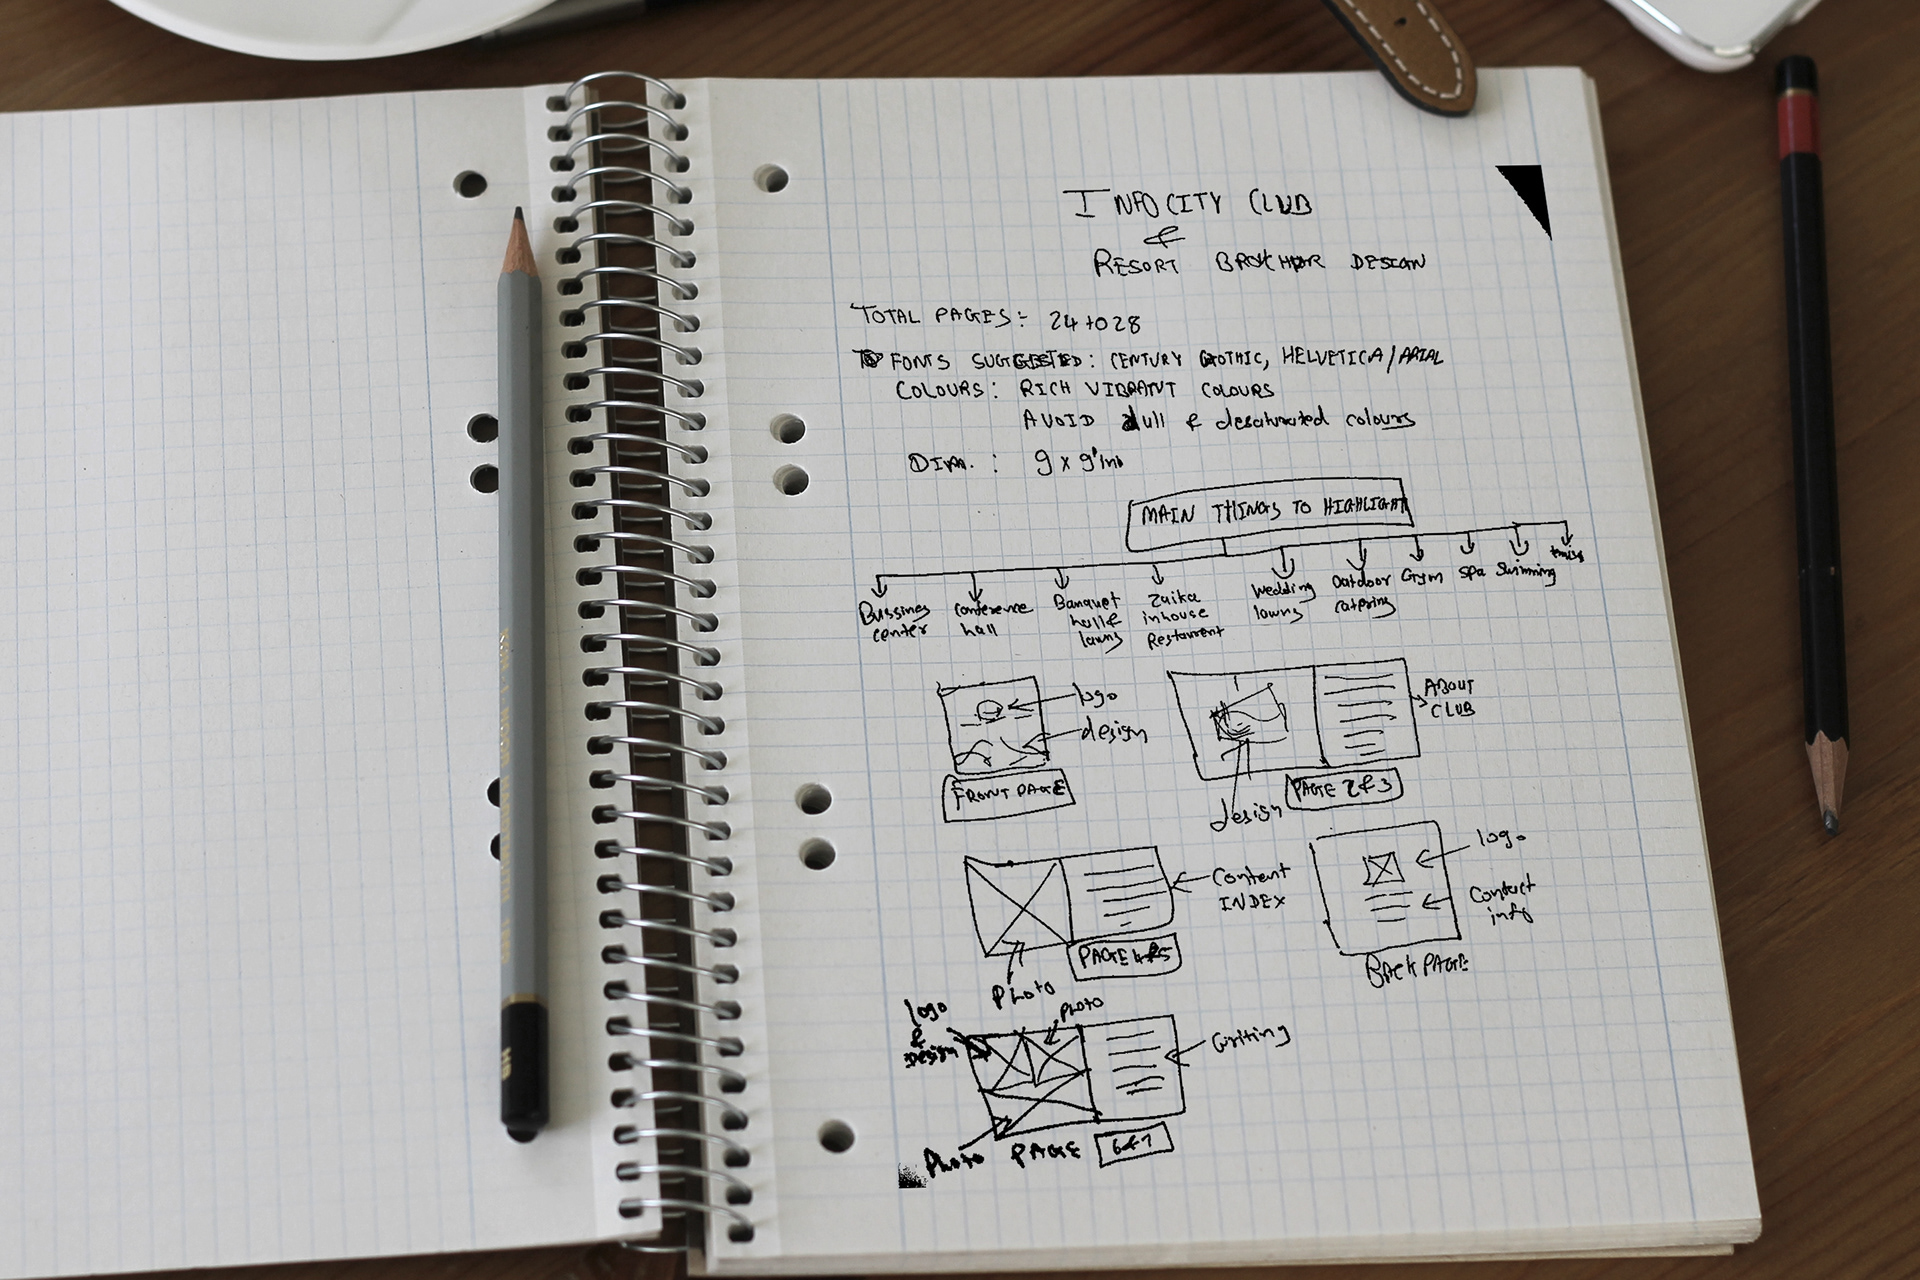 INFOCITY CLUB
&
RESORT BROCHUR DESIGN
TOTAL PAGES: 24 to 28
FONTS SUGGESTED: CENTURY GOTHIC, HELVETICA/ARIAL
COLOURS: RICH VIBRANT COLOURS
AVOID dull & desaturated colours
DIM. : 9 x 9
MAIN THINGS TO HIGHLIGHT
Bussines center
Conference hall
Banquet hall & lawns
Zaika inhouse Restaurent
Wedding lawns
Outdoor catering
Gym
Spa
Swimming
logo
design
FRONT PAGE
ABOUT CLUB
design
PAGE 2&3
Content INDEX
Photo
PAGE 4&5
logo
Contact info
BACK PAGE
logo & Design
Photo
Writing
Photo
PAGE 6&7
HB